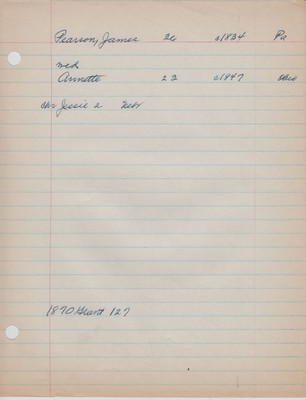 Pearson, James 36 c1834 Pa
wed
Annette 22 c1847
ch: Jessie 2 Nebr
1870 Grant 127